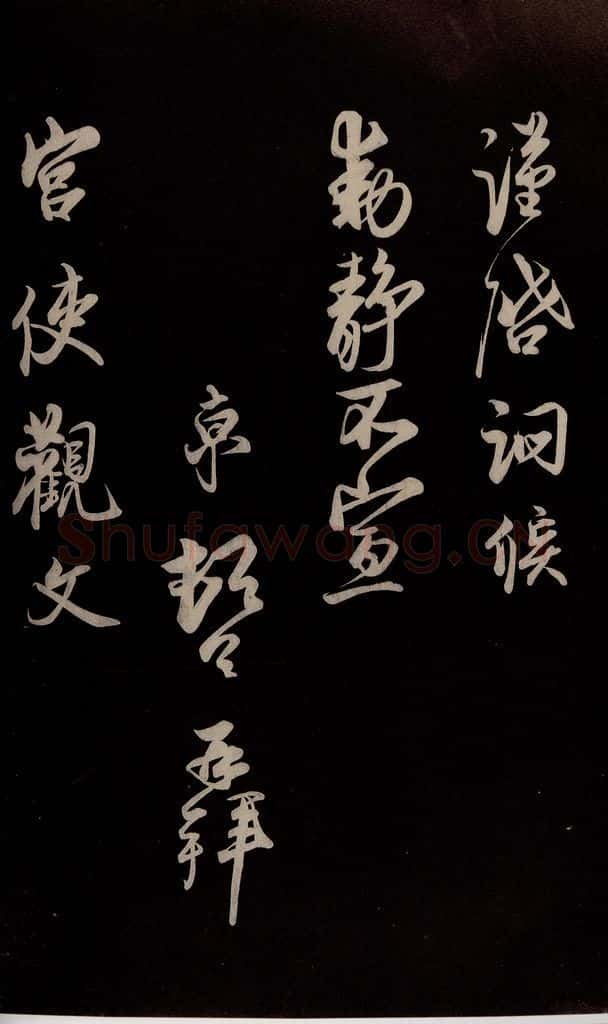 謹啓詗候
動静不宣
京 再拜
宮使觀文
Shufawang.cn